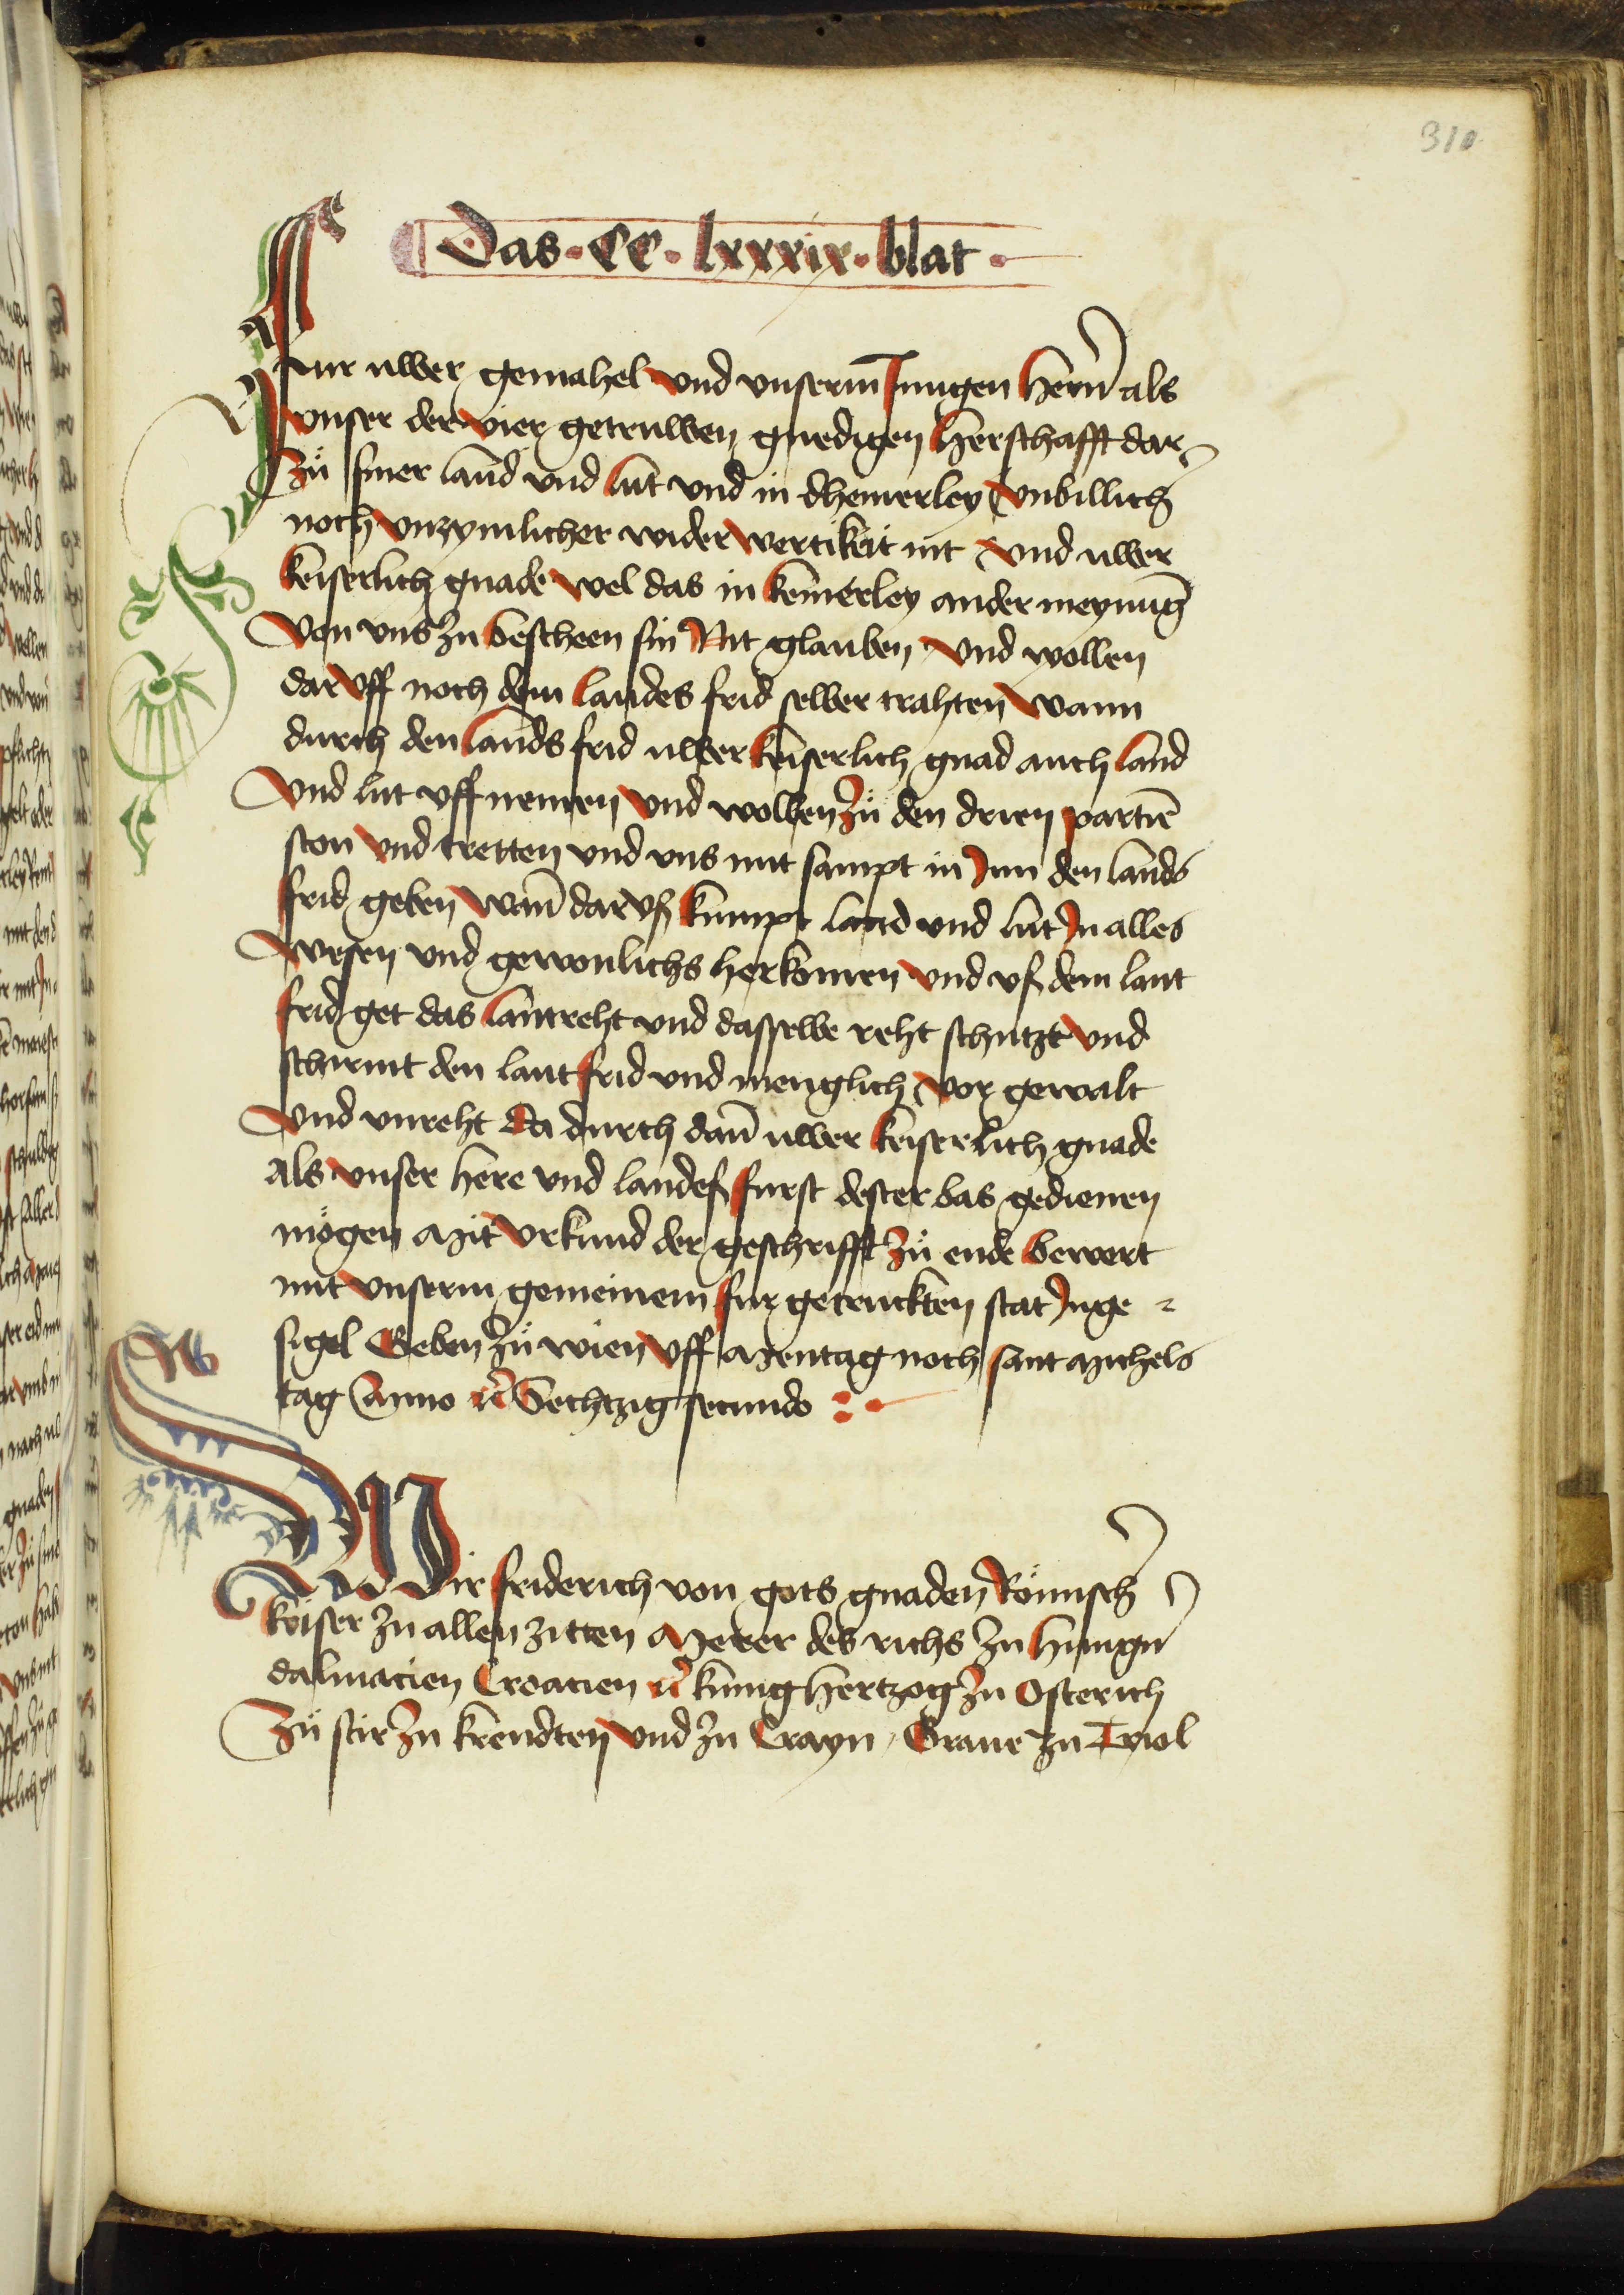 310
Das · CC · lxxxix · blat ·
Fur uwer gemahel vnd vnserm Jungen hern̄ als
vnser der vier getruwen gnedigen herschafft dar
zů siner land vnd lut vnd in dhemerley vnbillich
noch vnzymlicher widerwertikeit nit vnd uwer
keiserlich gnade wel das in keinerley ander meynūg
von vns zu bescheen sin Nit glauben vnd wollen
daruff noch dem landes frid selber trahten wann
durch den lands frid uwer keiserlich gnad auch land
vnd lut vff nemen vnd wollen zů den drien partiē
ston vnd tretten vnd vns mit sampt in Jnn den lands
frid geben wañ darvß kumpt land vnd lut Jn alles
wesen vnd gewonlichs herkomen vnd vß dem lant
frid get das lantreht vnd dasselbe reht schutzt vnd
schirmt den lantfrid vnd menglich vor gewalt
vnd vnreht Da durch dañ uwer keiserlich gnade
als vnser here vnd landeß furst dester bas gedienen
mögen Mit vrkund der geschrifft zů ende bewert
mit vnserm gemeinem fur getruckten stat Jnge
sigel Geben zů wien vff Mentag noch sant Michels
tag Anno &c Sechtzig secundo
W
Wir friderich von gots gnaden Römisch
keiser zu allen zitten Merer des richs zu hungn̄
dalmacien Croacien &c kunig hertzog zu Osterich
zů stir zu krendten vnd zu Crayn Graue zu Tyrol